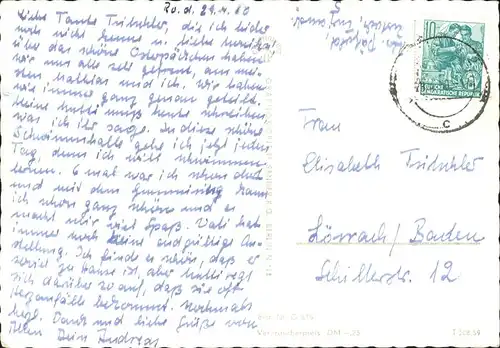 Ru. d. 29.4.60
Liebe Tante Tritschler, die ich leider
noch nicht kenne u. liebe
über das schöne Osterpäckchen haben
wir uns alle sehr gefreut, am mei-
sten Matthias und ich, wir haben
wie immer ganz genau geteilt.
Meine Mutti muß heute schreiben,
was ich ihr sage. In diese schöne
Schwimmhalle gehe ich jetzt jeden
Tag, denn ich will schwimmen
lernen. 6 mal war ich schon dort
und mit dem Gummiring kann
ich schon ganz schön und es
macht mir viel Spaß. Vati hat
immer noch keine endgültige An-
stellung. Ich finde es schön, daß er
soviel zu Hause ist, aber Mutti regt
sich darüber so auf, daß sie oft
Herzanfälle bekommt. Nochmals
hzl. Dank und liebe Grüße von
Allen Dein Andreas
10
DEUTSCHE
DEMOKRATISCHE REPUBLIK
c
Frau
Elisabeth Tritschler
Lörrach/Baden
Schillerstr. 12